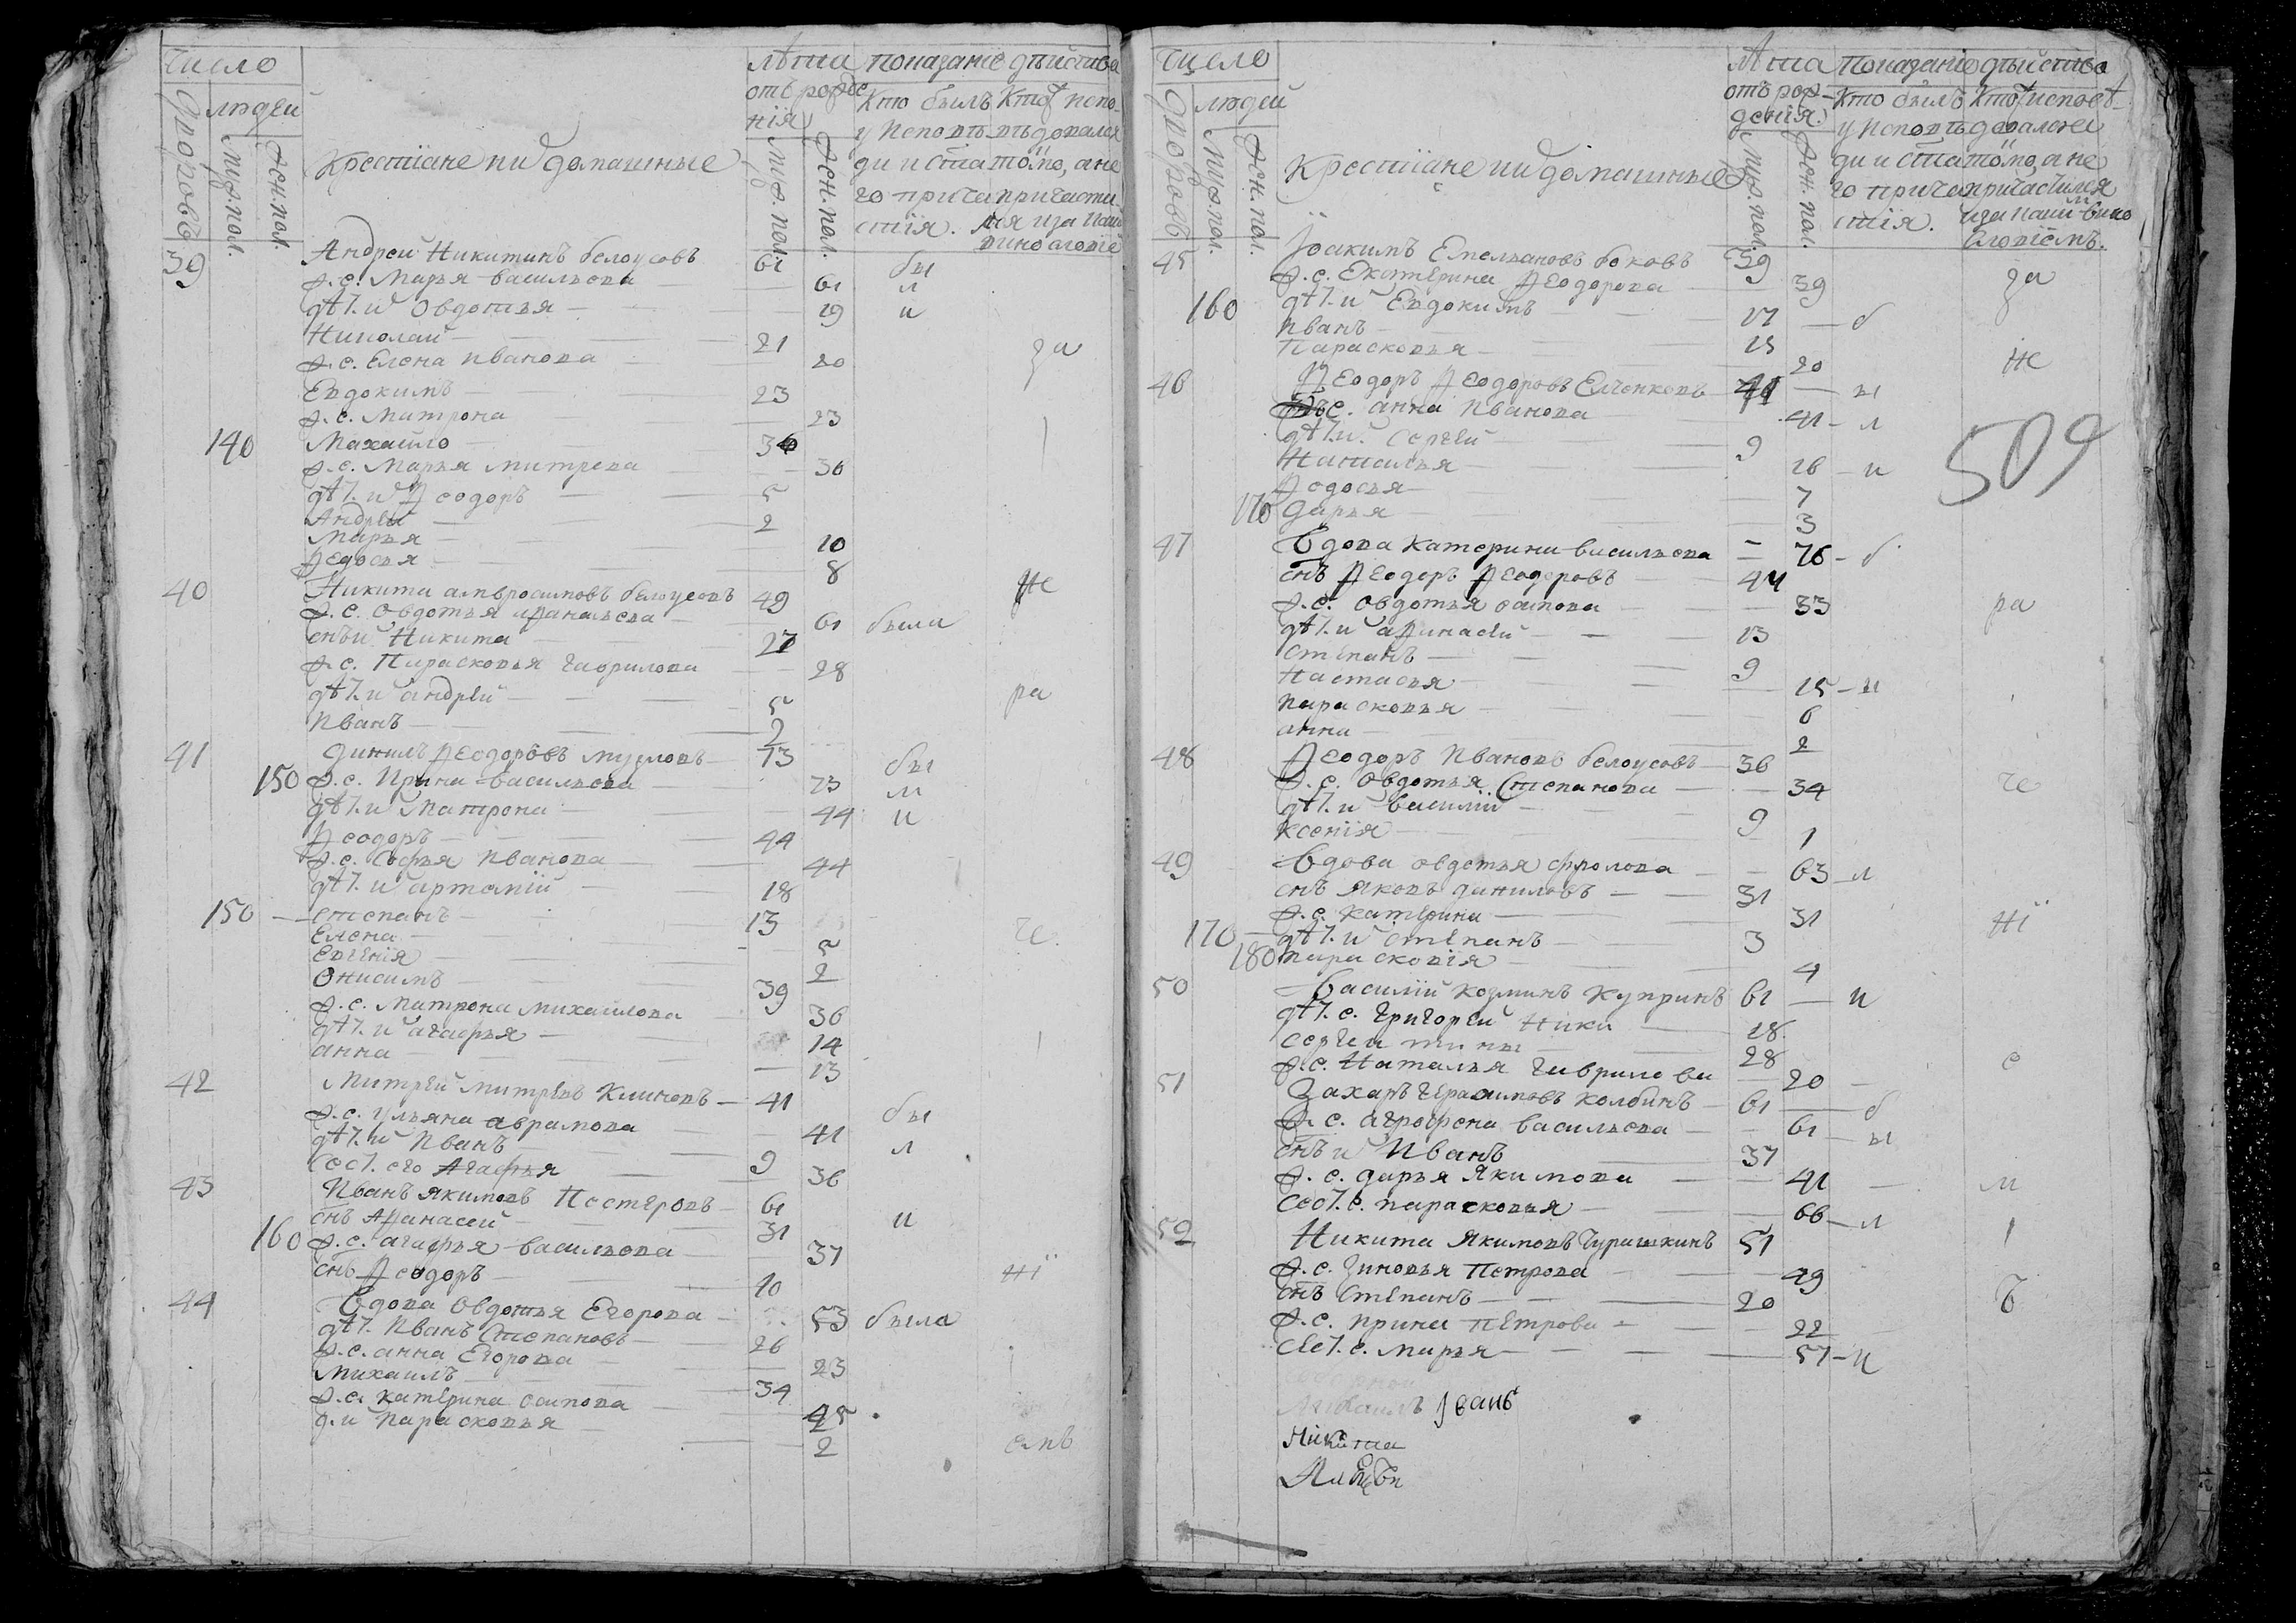 число
людей
дворовъ
муж.пол.
жен.пол.
Крестіяне и и домашные
лѣта
отъ рож
нія
муж. пол.
жен. пол.
показаніе дѣйства
Кто былъ
у исповѣ
ди и свято
го прича
стія.
Кто испо-
вѣдовался
то, а не
причасти
ся и за каки
винословіе
39 Андреи Никитинъ белоусовъ 61 бы
ж.с. Марья васильева 61 л
дѣт. и овдотья 19 и
Николаи 21
ж.с. Елена иванова 20 за
Евдокимъ 23
ж.с. Матрона 23
140 Михаило 36
ж.с. Марья митрева 36
дѣт. и Ѳеодоръ 5
Андрей 2
Марья 10
Ѳедосья 8
40 Никита амвросимовъ белоусовъ 49 Не
ж.с. овдотья аѳанасьева 61 были
снъ и Никита 27
ж.с. Парасковья гаврилова 28
дѣт. и андрей 5 ра
иванъ 2
41 Данилъ Ѳеодоровъ 73 бы
150 ж.с. ирина васильева 73 л
дѣт. и Матрона 44 и
Ѳеодоръ 44
ж.с. Софья иванова 44
дѣт. и артамій 18
150 степанъ 13
Елена 5 че
Евгенія 2
Онисимъ 39
ж.с. Матрона михаилова 36
дѣт. и агафья 14
анна 13
42 Митрей митревъ Климовъ 41
ж.с. ульяна аврамова 41 бы
дѣт. и иванъ 9 л
сест. его Агафья 36
43 иванъ якимовъ Нестеровъ 61
снъ Аѳанасеи 31 и
160 ж.с. агафья васильева 37
снъ Ѳеодоръ 10 ні
44 Вдова овдотья Егорова 53 была
дѣт. иванъ Степановъ 26
ж.с. анна Егорова 23
михаилъ 34
ж.с. катерина осипова 45
д. и парасковья 2 емъ
число
людей
дворовъ
муж.пол.
жен.пол.
Крестіяне и и домашные
лѣта
отъ рож-
денія.
муж. пол.
жен. пол.
показаніе дѣйства
Кто былъ
у исповѣ
ди и свято
го прича
стія.
Кто исповѣ-
довался
то, а не
причастился
и за каки вино
словіемъ.
45 Іоакимъ Емельяновъ боковъ 39
ж.с. Екатерина Ѳеодорова 39 за
160 дѣт. и Евдокимъ 17 б
иванъ 15
Парасковья 20 не
46 Ѳеодоръ Ѳеодоровъ Емченковъ 41 ы
ж.с. анна иванова 41 л
дѣт. и Сергей 9
Наталья 16 и
Ѳедосья 7
170 Дарья 3
47 Вдова катерина васильева 76 б
снъ Ѳеодоръ Ѳеодоровъ 44
ж.с. овдотья осипова 33 ра
дѣт. и аѳинасей 13
степанъ 9
Настасья 15 и
парасковья 6
анна 2
48 Ѳеодоръ ивановъ белоусовъ 36
ж.с. овдотья Степанова 34 че
дѣт. и василій 9
ксенія 1
49 Вдова овдотья фролова 63 л
снъ яковъ даниловъ 31
ж.с. катерина 31 ні
170 дѣт. и степанъ 3
180 парасковія 4
50 Василій козминъ купринъ 61 и
дѣт. с. григорей Ники 18
сергеи тины 28
ж.с. Наталья гаврилова 20 е
51 Захаръ герасимовъ колбинъ 61 б
ж.с. агрофена васильева 61 ы
снъ и иванъ 37
ж.с. дарья якимова 41 м
сест. е. параскоья 66 л
52 Никита якимовъ Чурашкинъ 51
ж.с. зиновья петрова 49
снъ степанъ 20 ъ
ж.с. ирина петрова 22
сест. е. марья 57 и
Іванъ
Никита
509